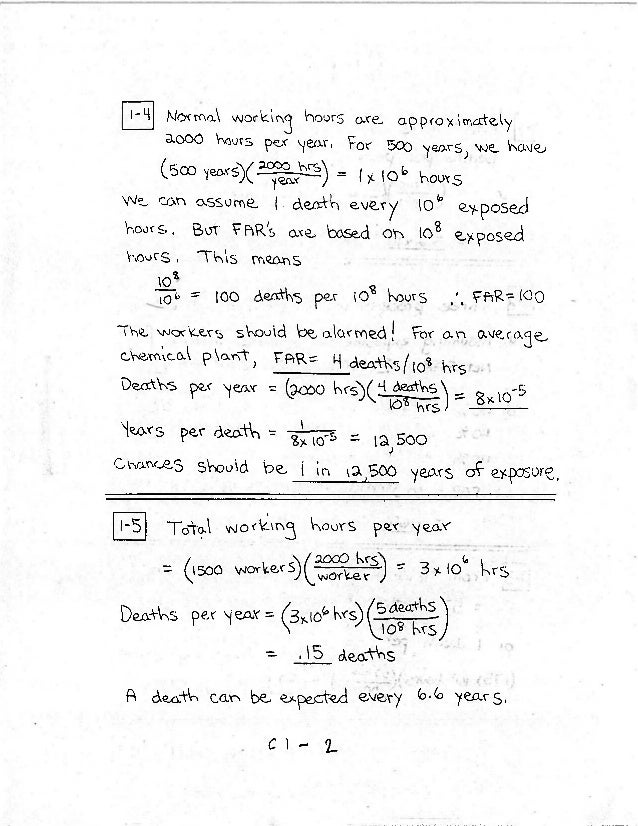 1-4 Normal working hours are approximately
2000 hours per year. For 500 years, we have
(500 years)(2000 hrs/year) = 1 x 10^6 hours
We can assume 1 death every 10^6 exposed
hours. But FAR's are based on 10^8 exposed
hours. This means
10^8/10^6 = 100 deaths per 10^8 hours ∴ FAR=100
The workers should be alarmed! For an average
chemical plant, FAR= 4 deaths/10^8 hrs
Deaths per year = (2000 hrs)(4 deaths/10^8 hrs) = 8x10^-5
Years per death = 1/8x10^-5 = 12,500
Chances should be 1 in 12,500 years of exposure.
1-5 Total working hours per year
= (1500 workers)(2000 hrs/worker) = 3 x 10^6 hrs
Deaths per year = (3x10^6 hrs)(5 deaths/10^8 hrs)
= .15 deaths
A death can be expected every 6.6 years.
C1-2